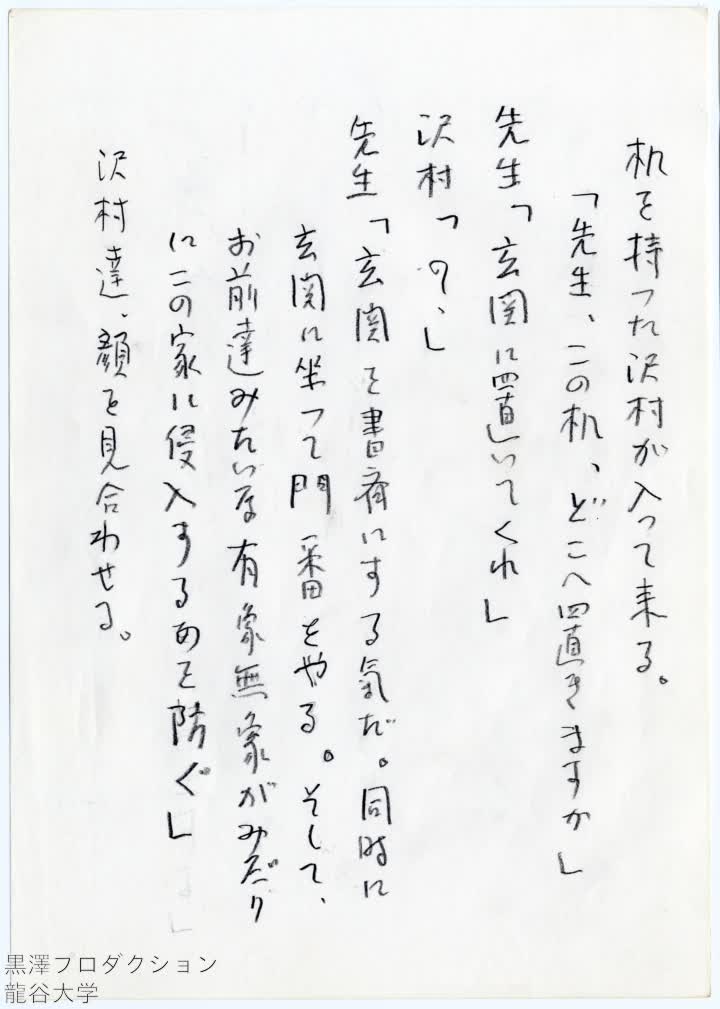 机を持った沢村が入って来る。
「先生、この机、どこへ置きますか」
先生「玄関に置いてくれ」
沢村「の、」
先生「玄関を書斎にする気だ。同時に
玄関に坐って門番をやる。そして、
お前達みたいな有象無象がみだり
にこの家に侵入するのを防ぐ」
沢村達、顔を見合わせる。
黒澤プロダクション
龍谷大学